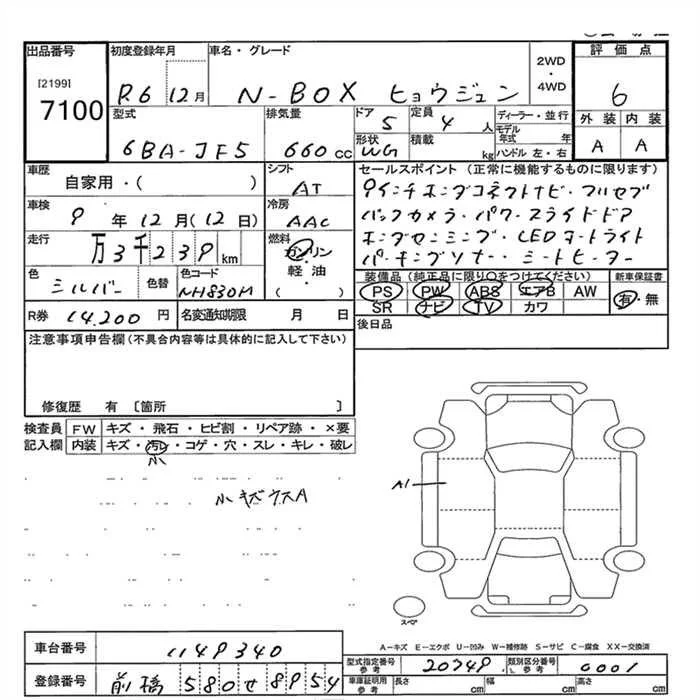 出品番号 初度登録年月 車名・グレード 2WD・4WD 評価点
[2199]
7100 R6 12月 N-BOX ヒョウジュン 6
型式 排気量 ドア 5 定員 4人 ディーラー・並行 外装 内装
モデル年式 年
6BA-JF5 660cc 形状 WG 積載 kg ハンドル 左・右 A A
車歴 自家用・( ) シフト AT セールスポイント (正常に機能するものに限ります)
9インチホンダコネクトナビ・フルセグ
車検 9年12月(12日) 冷房 AAC バックカメラ・パワースライドドア
走行 万3千239km 燃料 ガソリン・軽油・( ) ホンダセンシング・LEDオートライト
パーキングソナー・シートヒーター
色 シルバー 色替 色コード NH830M 装備品(純正品に限り○をつけてください) 新車保証書
PS PW ABS エアB AW 有・無
SR ナビ TV カワ
R券 14,200円 名変通知期限 月 日 後日品
注意事項申告欄(不具合内容等は具体的に記入して下さい)
修復歴 有 [箇所 ]
検査員記入欄 FW キズ・飛石・ヒビ割・リペア跡・×要
内装 キズ・汚レ・コゲ・穴・スレ・キレ・破レ
小
小キズウスA
A1
スペア
A-キズ E-エクボ U-凹み W-補修跡 S-サビ C-腐食 XX-交換済
車台番号 1149340 型式指定番号 参考 20749 類別区分番号 参考 0001
登録番号 前橋 580せ8954 車庫証明用 参考 長さ cm 幅 cm 高さ cm